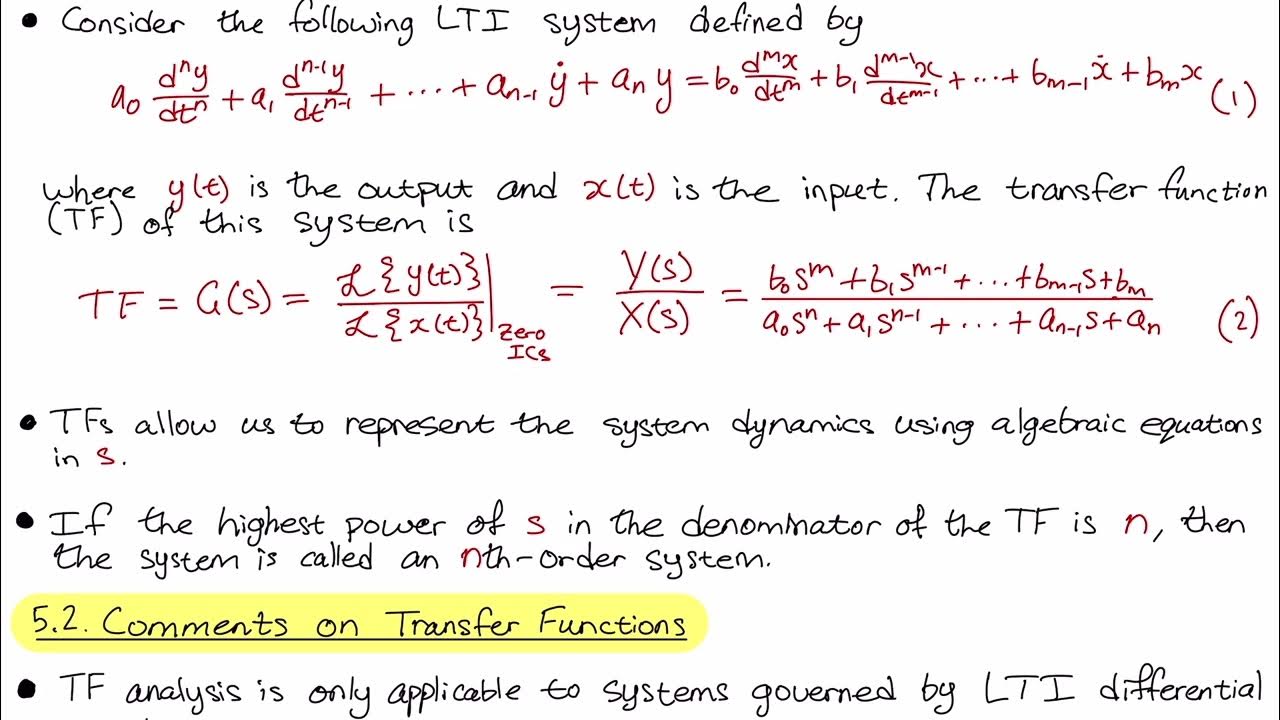 • Consider the following LTI system defined by
a₀ dⁿy/dtⁿ + a₁ dⁿ⁻¹y/dtⁿ⁻¹ + ... + aₙ₋₁ ẏ + aₙ y = b₀ dᵐx/dtᵐ + b₁ dᵐ⁻¹x/dtᵐ⁻¹ + ... + bₘ₋₁ ẋ + bₘ x (1)
where y(t) is the output and x(t) is the input. The transfer function
(TF) of this system is
TF = G(s) = ℒ{y(t)}/ℒ{x(t)} |Zero ICs = Y(s)/X(s) = (b₀sᵐ + b₁sᵐ⁻¹ + ... + bₘ₋₁s + bₘ)/(a₀sⁿ + a₁sⁿ⁻¹ + ... + aₙ₋₁s + aₙ) (2)
• TFs allow us to represent the system dynamics using algebraic equations
in s.
• If the highest power of s in the denominator of the TF is n, then
the system is called an nth-order system.
5.2. Comments on Transfer Functions
• TF analysis is only applicable to systems governed by LTI differential